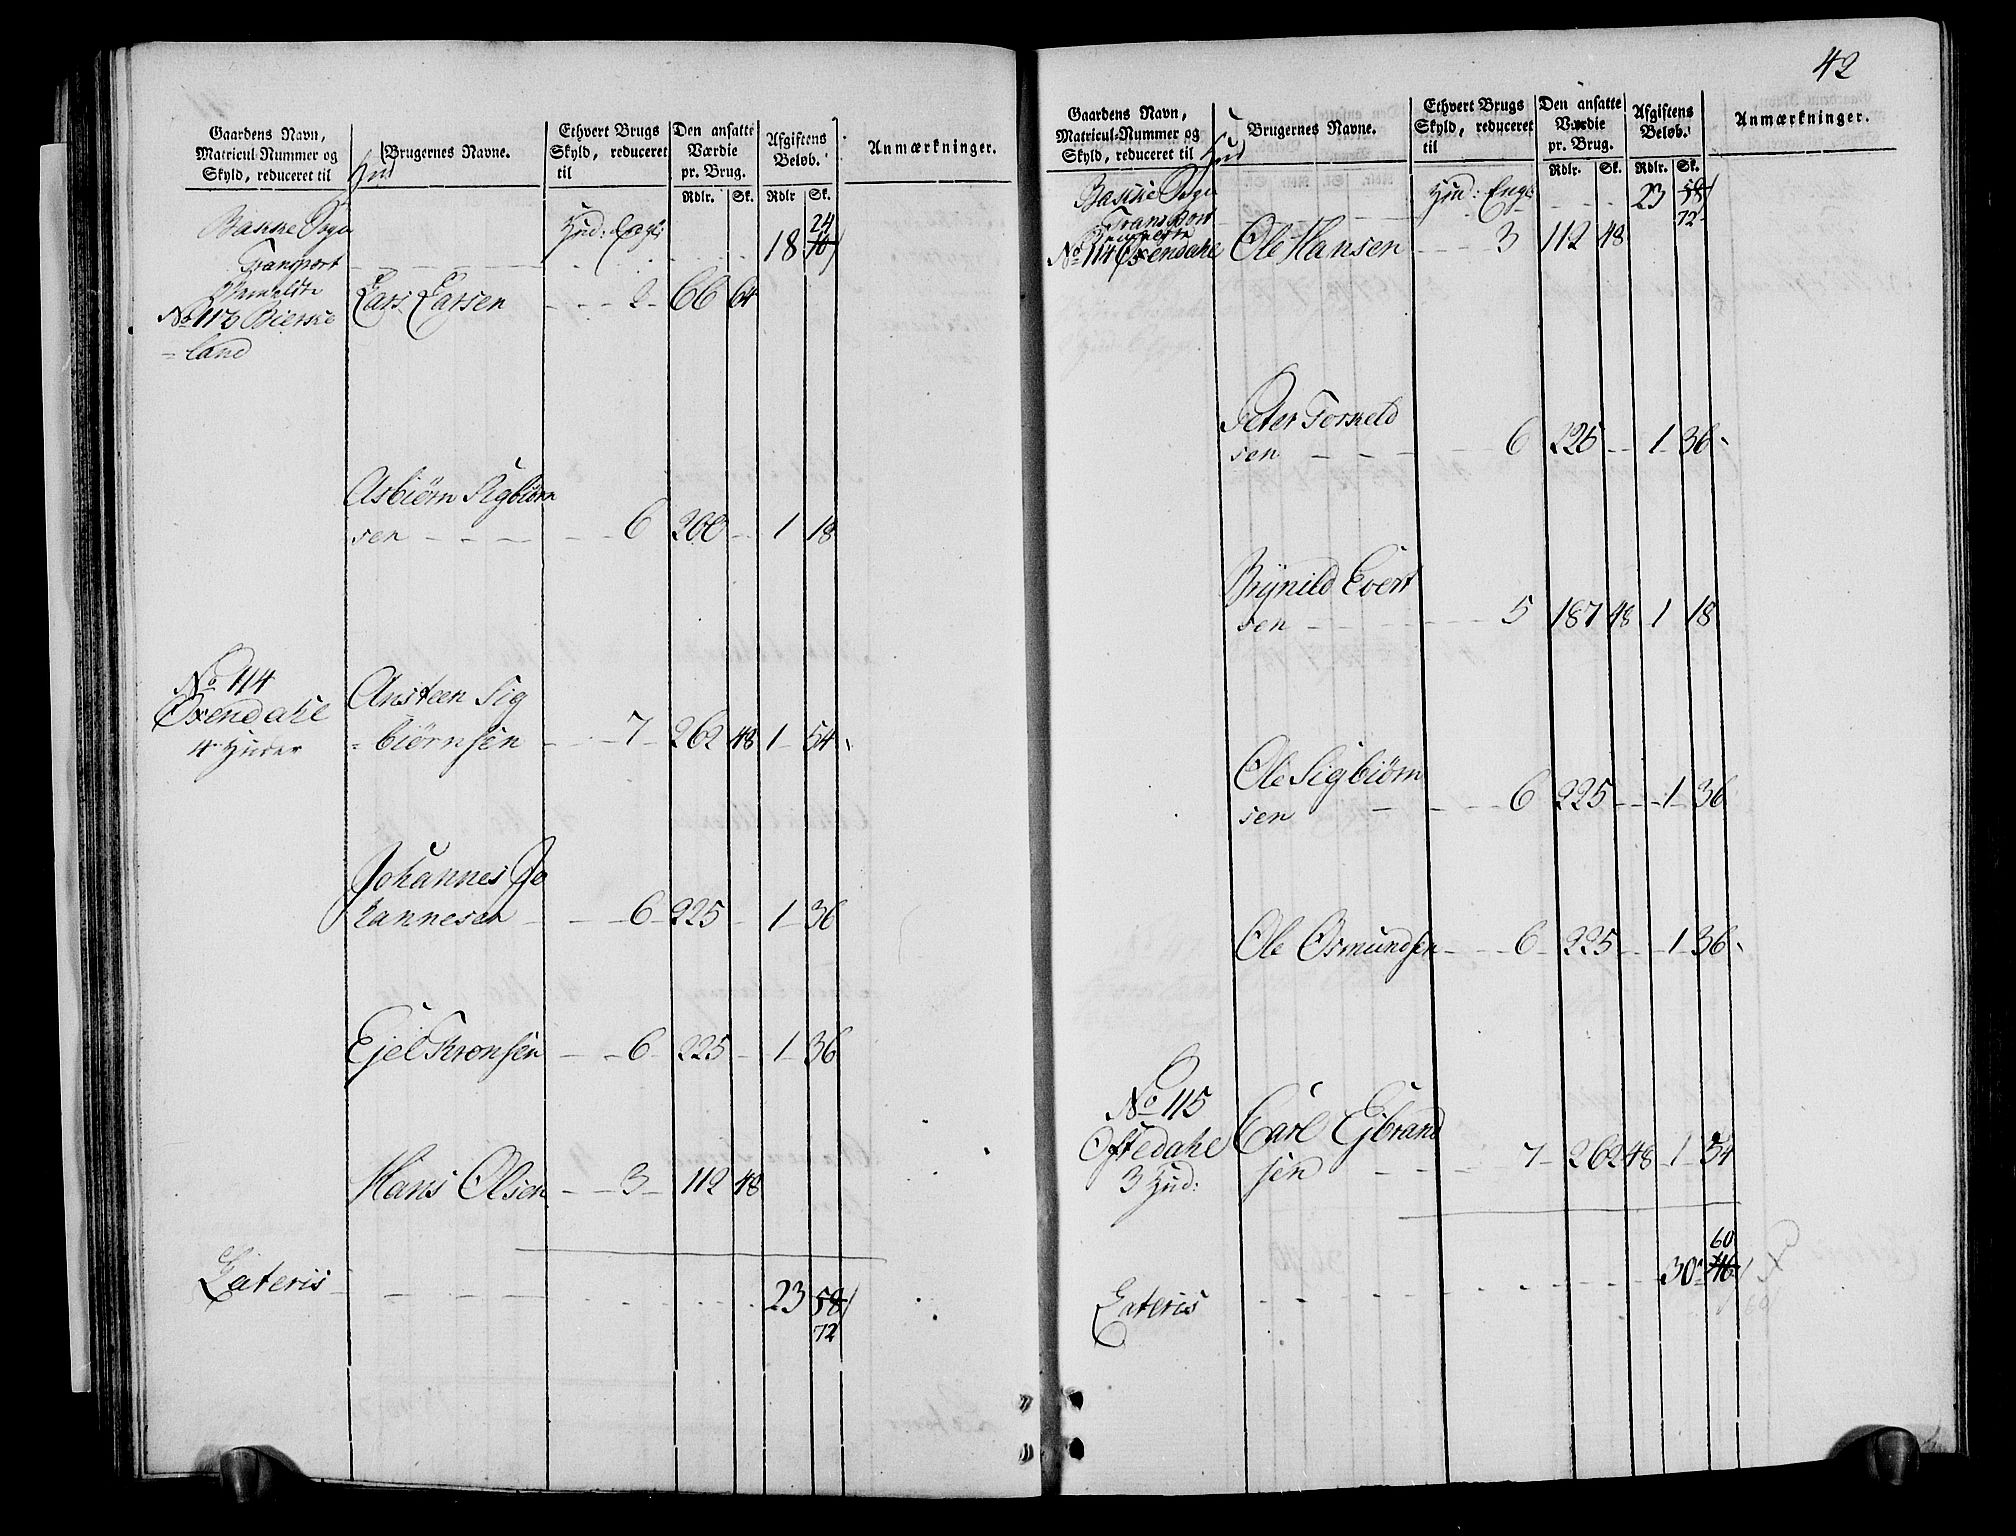 Gaardens Navn,
Matricul-Nummer og
Skyld, reduceret til
Hud
Brugernes Navne.
Ethvert Brugs
Skyld, reduceret
til
Den ansatte
Værdie
pr. Brug.
Rdlr. Sk.
Afgiftens
Beløb.
Rdlr Sk.
Anmærkninger.
Bakke Sogn Hud: Engl: 24
Transport 18 10
Anmeldte
No 113 Bierke Lars Larsen 2 66 64
= land
Asbiørn Sigbiørn
sen 6 200 1 18
No 114
Oxendahl Ansteen Sig
4 Huder = biørnsen 7 262 48 1 54
Johannes Jo
hannesen 6 225 1 36
Ejel Tronsen 6 225 1 36
Hans Olsen 3 112 48
Lateris 23 58
72
42
Gaardens Navn,
Matricul-Nummer og
Skyld, reduceret til
Hud
Brugernes Navne.
Ethvert Brugs
Skyld, reduceret
til
Den ansatte
Værdie
pr. Brug.
Rdlr. Sk.
Afgiftens
Beløb.
Rdlr. Sk.
Anmærkninger.
Bakke Sogn Hud: Engl: 23 58
Transport 72
Anmeldte
No 114 Oxendahl Ole Hansen 3 112 48
Peter Torkeld
sen 6 225 1 36
Brynild Evert
sen 5 187 48 1 18
Ole Sigbiørn
sen 6 225 1 36
Ole Osmundsen 6 225 1 36
No 115
Oftedahl Carl Ejbrand
3 Hud: sen 7 262 48 1 54
60
Lateris 30 46